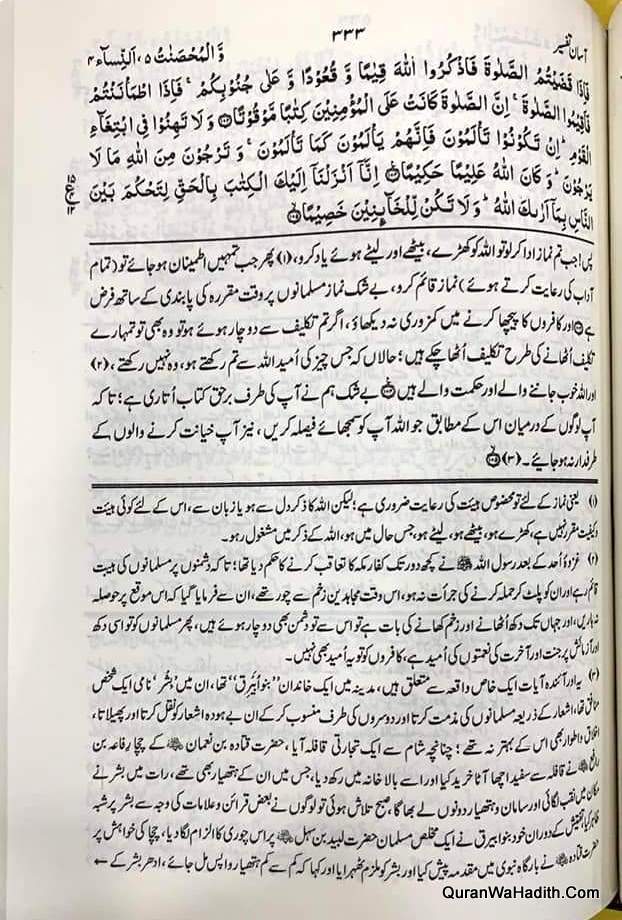 آسان تفسیر ۳۳۳ وَالْمُحْصَنٰتُ ۵، اَلنِّسَآء ۴
فَاِذَا قَضَيْتُمُ الصَّلٰوةَ فَاذْكُرُوا اللّٰهَ قِيٰمًا وَّ قُعُوْدًا وَّ عَلٰى جُنُوْبِكُمْ ۚ فَاِذَا اطْمَاْنَنْتُمْ
فَاَقِيْمُوا الصَّلٰوةَ ۚ اِنَّ الصَّلٰوةَ كَانَتْ عَلَى الْمُؤْمِنِيْنَ كِتٰبًا مَّوْقُوْتًا ۝ وَ لَا تَهِنُوْا فِى ابْتِغَآءِ
الْقَوْمِ ؕ اِنْ تَكُوْنُوْا تَاْلَمُوْنَ فَاِنَّهُمْ يَاْلَمُوْنَ كَمَا تَاْلَمُوْنَ ۚ وَ تَرْجُوْنَ مِنَ اللّٰهِ مَا لَا
يَرْجُوْنَ ؕ وَ كَانَ اللّٰهُ عَلِيْمًا حَكِيْمًا ۝ اِنَّاۤ اَنْزَلْنَاۤ اِلَيْكَ الْكِتٰبَ بِالْحَقِّ لِتَحْكُمَ بَيْنَ
النَّاسِ بِمَاۤ اَرٰىكَ اللّٰهُ ؕ وَ لَا تَكُنْ لِّلْخَآئِنِيْنَ خَصِيْمًا ۝
پس! جب تم نماز ادا کرلو تو اللہ کو کھڑے، بیٹھے اور لیٹے ہوئے یاد کرو، (۱) پھر جب تمہیں اطمینان ہو جائے تو (تمام
آداب کی رعایت کرتے ہوئے) نماز قائم کرو، بے شک نماز مسلمانوں پر وقت مقررہ کی پابندی کے ساتھ فرض
ہے ۝ اور کافروں کا پیچھا کرنے میں کمزوری نہ دیکھاؤ، اگر تم تکلیف سے دوچار ہوئے ہو تو وہ بھی تو تمہارے
تکلیف اُٹھانے کی طرح تکلیف اُٹھا چکے ہیں؛ حالاں کہ جس چیز کی اُمید اللہ سے تم رکھتے ہو، وہ نہیں رکھتے، (۲)
اور اللہ خوب جاننے والے اور حکمت والے ہیں ۝ بے شک ہم نے آپ کی طرف برحق کتاب اُتاری ہے؛ تاکہ
آپ لوگوں کے درمیان اس کے مطابق جو اللہ آپ کو سمجھائے فیصلہ کریں، نیز آپ خیانت کرنے والوں کے
طرفدار نہ ہو جائیے۔ (۳) ۝
(۱) یعنی نماز کے لئے تو مخصوص ہیئت کی رعایت ضروری ہے؛ لیکن اللہ کا ذکر دل سے ہو یا زبان سے، اس کے لئے کوئی ہیئت
وکیفیت مقرر نہیں ہے، کھڑے ہو، بیٹھے ہو، لیٹے ہو، جس حال میں ہو، اللہ کے ذکر میں مشغول رہو۔
(۲) غزوۂ اُحد کے بعد رسول اللہ ﷺ نے کچھ دور تک کفار مکہ کا تعاقب کرنے کا حکم دیا تھا؛ تاکہ دشمنوں پر مسلمانوں کی ہیبت
قائم رہے اور ان کو پلٹ کر حملہ کرنے کی جرأت نہ ہو، اس وقت مجاہدین زخم سے چور تھے، ان سے فرمایا گیا کہ اس موقع پر حوصلہ
نہ ہاریں، اور جہاں تک دکھ اُٹھانے اور زخم کھانے کی بات ہے تو اس سے تو دشمن بھی دوچار ہوئے ہیں، پھر مسلمانوں کو تو اسی دکھ
اور آزمائش پر جنت اور آخرت کی نعمتوں کی اُمید ہے، کافروں کو تو یہ اُمید بھی نہیں۔
(۳) یہ اور آئندہ آیات ایک خاص واقعہ سے متعلق ہیں، مدینہ میں ایک خاندان ’’بنو اُبیرق‘‘ تھا، ان میں ’بشر‘ نامی ایک شخص
منافق تھا، اشعار کے ذریعہ مسلمانوں کی مذمت کرتا اور دوسروں کی طرف منسوب کر کے ان بے ہودہ اشعار کو نقل کرتا اور پھیلاتا،
اخلاق و اطوار بھی اس کے بہتر نہ تھے؛ چنانچہ شام سے ایک تجارتی قافلہ آیا، حضرت قتادہ بن نعمان ؓ کے چچا رفاعہ بن
رافع ؓ نے قافلہ سے سفید اچھا آٹا خرید کیا اور اسے بالا خانہ میں رکھ دیا، جس میں ان کے ہتھیار بھی تھے، رات میں بشر نے
مکان میں نقب لگائی اور سامان و ہتھیار دونوں لے بھاگا، صبح تلاش ہوئی تو لوگوں نے بعض قرائن وعلامات کی وجہ سے بشر پر شبہ
ظاہر کیا، تفتیش کے دوران خود بنو ابیرق نے ایک مخلص مسلمان حضرت لبید بن سہل ؓ پر اس چوری کا الزام لگا دیا، چچا کی خواہش پر
حضرت قتادہ ؓ نے بارگاہ نبوی میں مقدمہ پیش کیا اور بشر کو ملزم ٹھہرایا اور کہا کہ کم سے کم ہتھیار واپس مل جائے، ادھر بشر کے ←
QuranWaHadith.Com